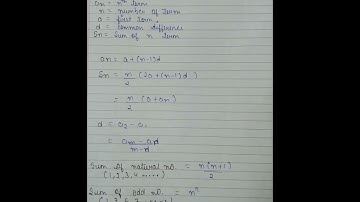 an = nth term
n = number of term
a = first term
d = common difference
Sn = Sum of n term
an = a + (n-1)d
Sn = n/2 (2a + (n-1)d)
= n/2 (a + an)
d = a2 - a1
= am - an / m - n
Sum of natural no. = n(n+1)/2
(1, 2, 3, 4 .....)
Sum of odd no. = n²